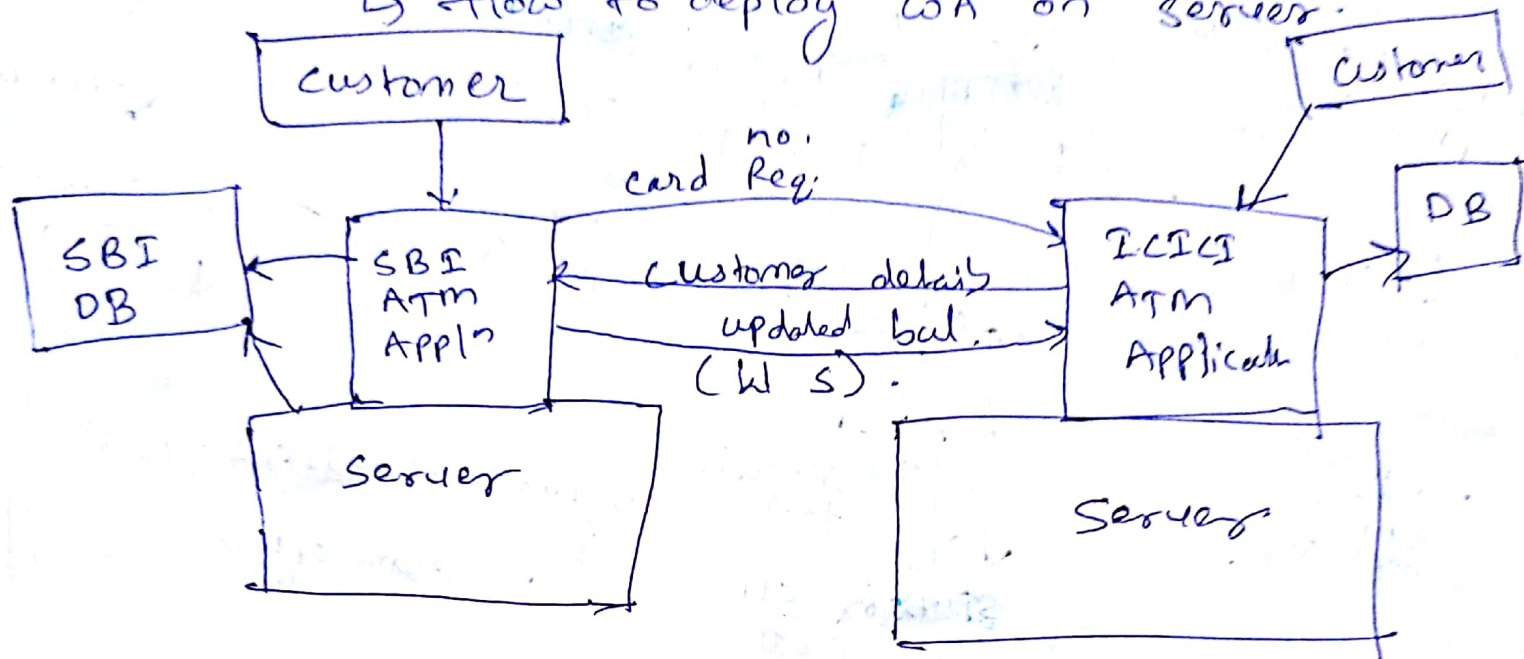 ↳ How to deploy WA on server.
Customer
Customer
no.
card Req.
DB
SBI
DB
SBI
ATM
Appln
customer details
updated bal.
(W S).
ICICI
ATM
Applicatn
Server
Server